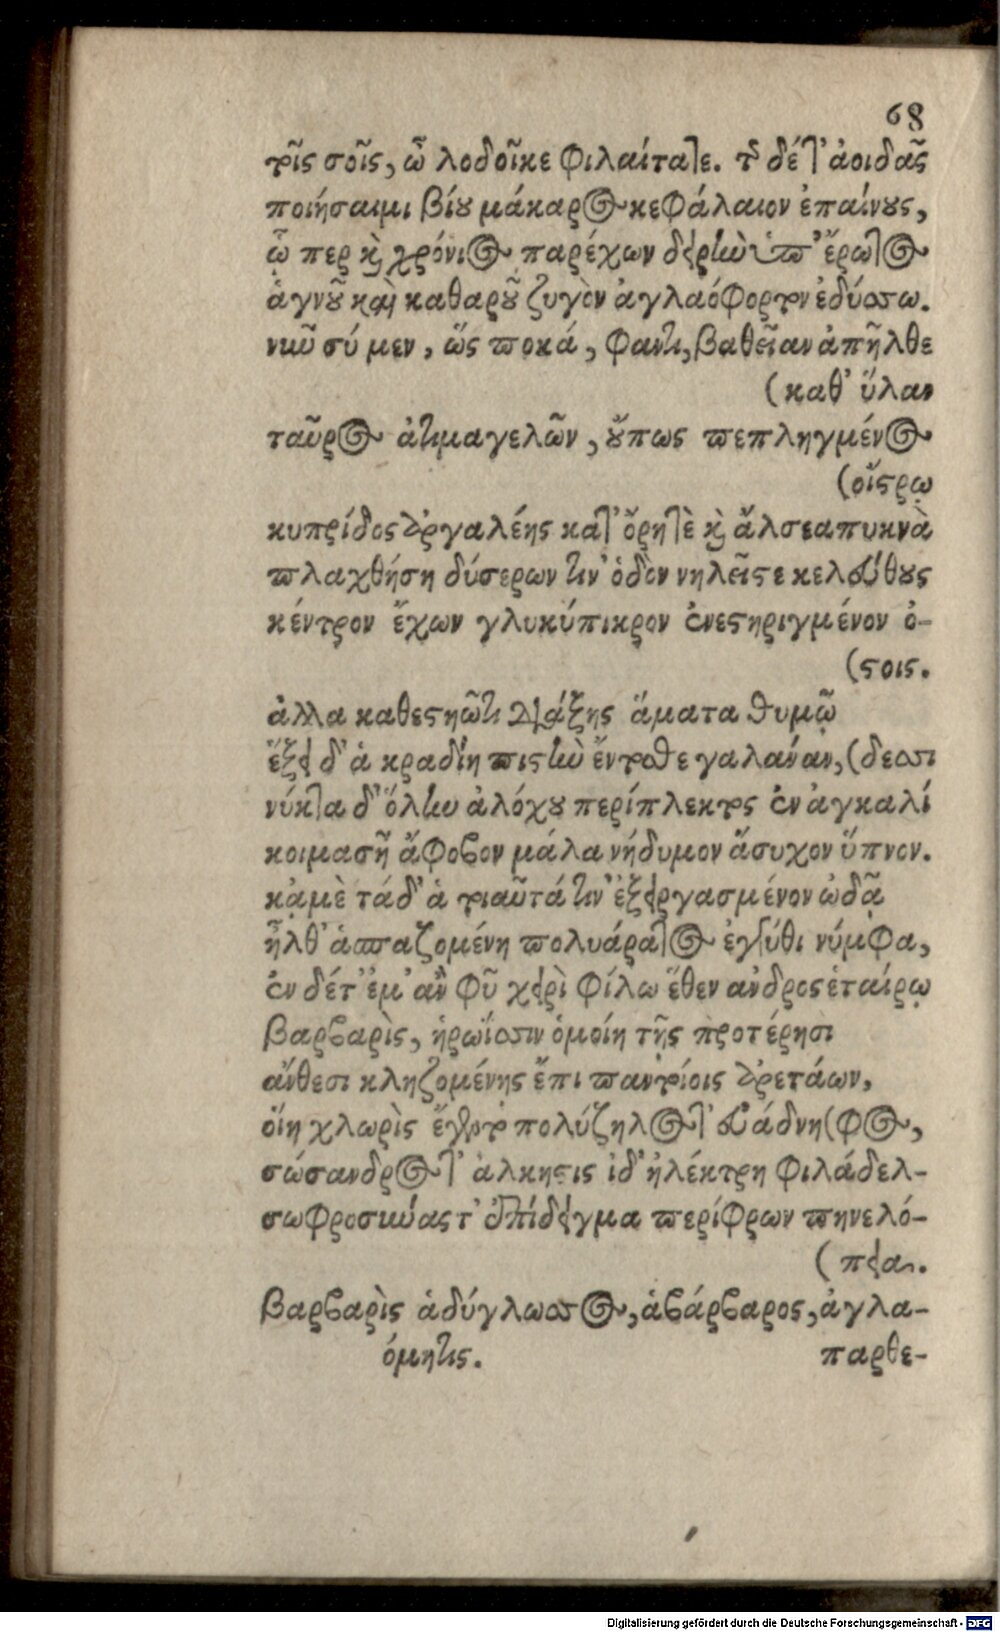 68
τοῖς σοῖς, ὦ λοδοῖκε φιλαίτατε. τὶ δέ τ' ἀοιδᾶς
ποιήσαιμι βίου μάκαρος κεφάλαιον ἐπαίνους,
ᾧ περ καὶ χρόνιος παρέχων δειρὴν ὑπ' ἔρωτος
ἁγνοῦ καὶ καθαροῦ ζυγὸν ἀγλαόφορτον ἐδύσω.
νῦν σύ μεν, ὥς ποκά, φαντι, βαθεῖαν ἀπῆλθε
(καθ' ὕλαν
ταῦρος ἀτιμαγελῶν, οὔπως πεπληγμένος
(οἴστρῳ
κυπρίδος ἀργαλέης κατ' ὄρη τὲ καὶ ἄλσεα πυκνὰ
πλαχθήση δύσερων τιν' ὁδὸν νηλεῖς τε κελεύθους
κέντρον ἔχων γλυκύπικρον ἐνεστηριγμένον ὀ-
(στοις.
ἀλλα καθεστηῶτι διάξης ἄματα θυμῷ
ἕξει δ' ἁ κραδίη πιστὴν ἔντοθε γαλάναν, (δεσσι
νύκτα δ' ὅλην ἀλόχου περίπλεκτος ἐν ἀγκαλί
κοιμασῆ ἄφοβον μάλα νήδυμον ἅσυχον ὕπνον.
κᾀμὲ τάδ' ἁ τοιαῦτά τιν' ἐξειργασμένον ᾠδᾷ
ἦλθ' ἀσπαζομένη πολυάρατος ἐγγύθι νύμφα,
ἐν δέτ' ἐμ' ἂν φῦ χειρὶ φίλω ἕθεν ανδρος ἑταίρῳ
βαρβαρὶς, ἡρωΐσσιν ὁμοίη τῇς προτέρησι
ἄνθεσι κληζομένης ἔπι παντοίοις ἀρετάων,
οἵη χλωρὶς ἔγεντο πολύζηλος τ' εὐάδνη (φος,
σώσανδρος τ' ἀλκηστις ἰδ' ἠλέκτρη φιλάδελ-
σωφροσύνας τ' ἐπίδειγμα περίφρων πηνελό-
(πεια.
βαρβαρὶς ἁδύγλωσσος, ἀβάρβαρος, ἀγλα-
όμητις. παρθε-
Digitalisierung gefördert durch die Deutsche Forschungsgemeinschaft - DFG